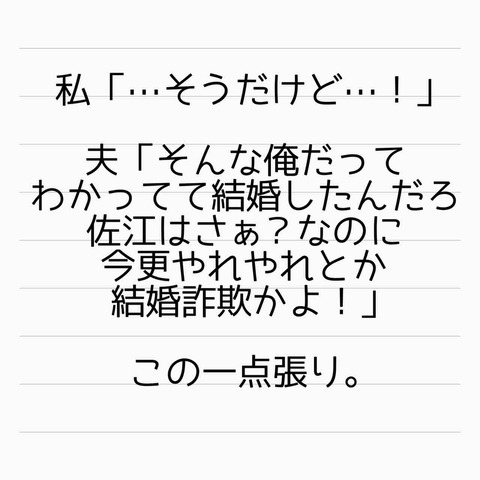 私「…そうだけど…！」
夫「そんな俺だって
わかってて結婚したんだろ
佐江はさぁ？なのに
今更やれやれとか
結婚詐欺かよ！」
この一点張り。